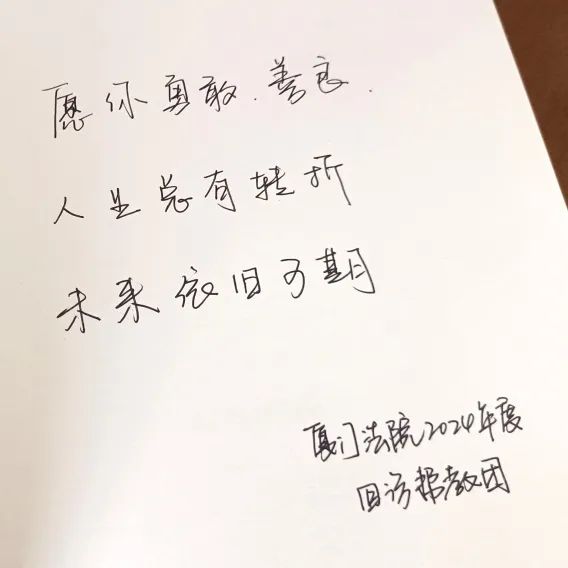 愿你勇敢.善良.
人生总有转折
未来依旧可期
厦门法院2024年度
回访帮教团